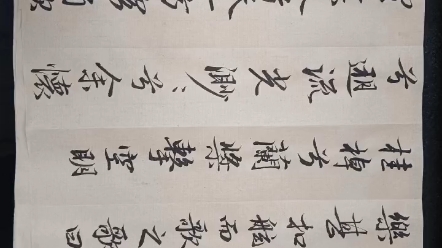 樂甚扣舷而歌之歌曰
桂棹兮蘭槳擊空明
兮遡流光渺〻兮余懷